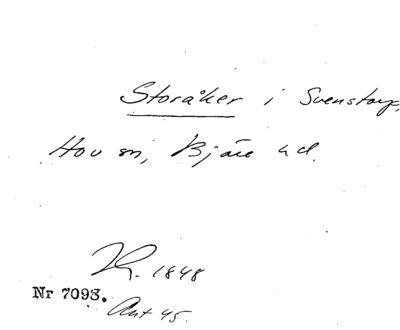 Storåker i Svenstorp,
Hov sn, Bjäre hd.
R. 1848
Nr 7093.
Ant 45.